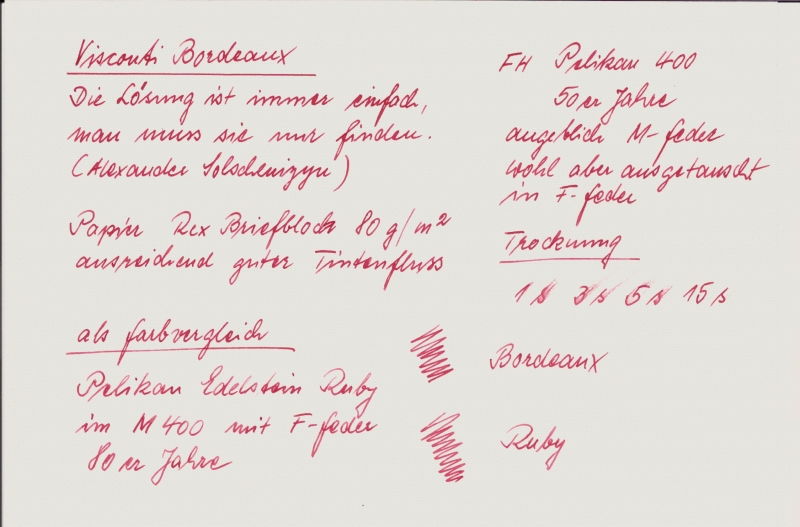 Visconti Bordeaux
Die Lösung ist immer einfach,
man muss sie nur finden.
(Alexander Solschenizyn)
Papier Rex Briefblock 80 g/m²
ausreichend guter Tintenfluss
als Farbvergleich
Pelikan Edelstein Ruby
im M 400 mit F-Feder
80er Jahre
FH Pelikan 400
50er Jahre
angeblich M-Feder
wohl aber ausgetauscht
in F-Feder
Trocknung
1 s 3 s 5 s 15 s
Bordeaux
Ruby